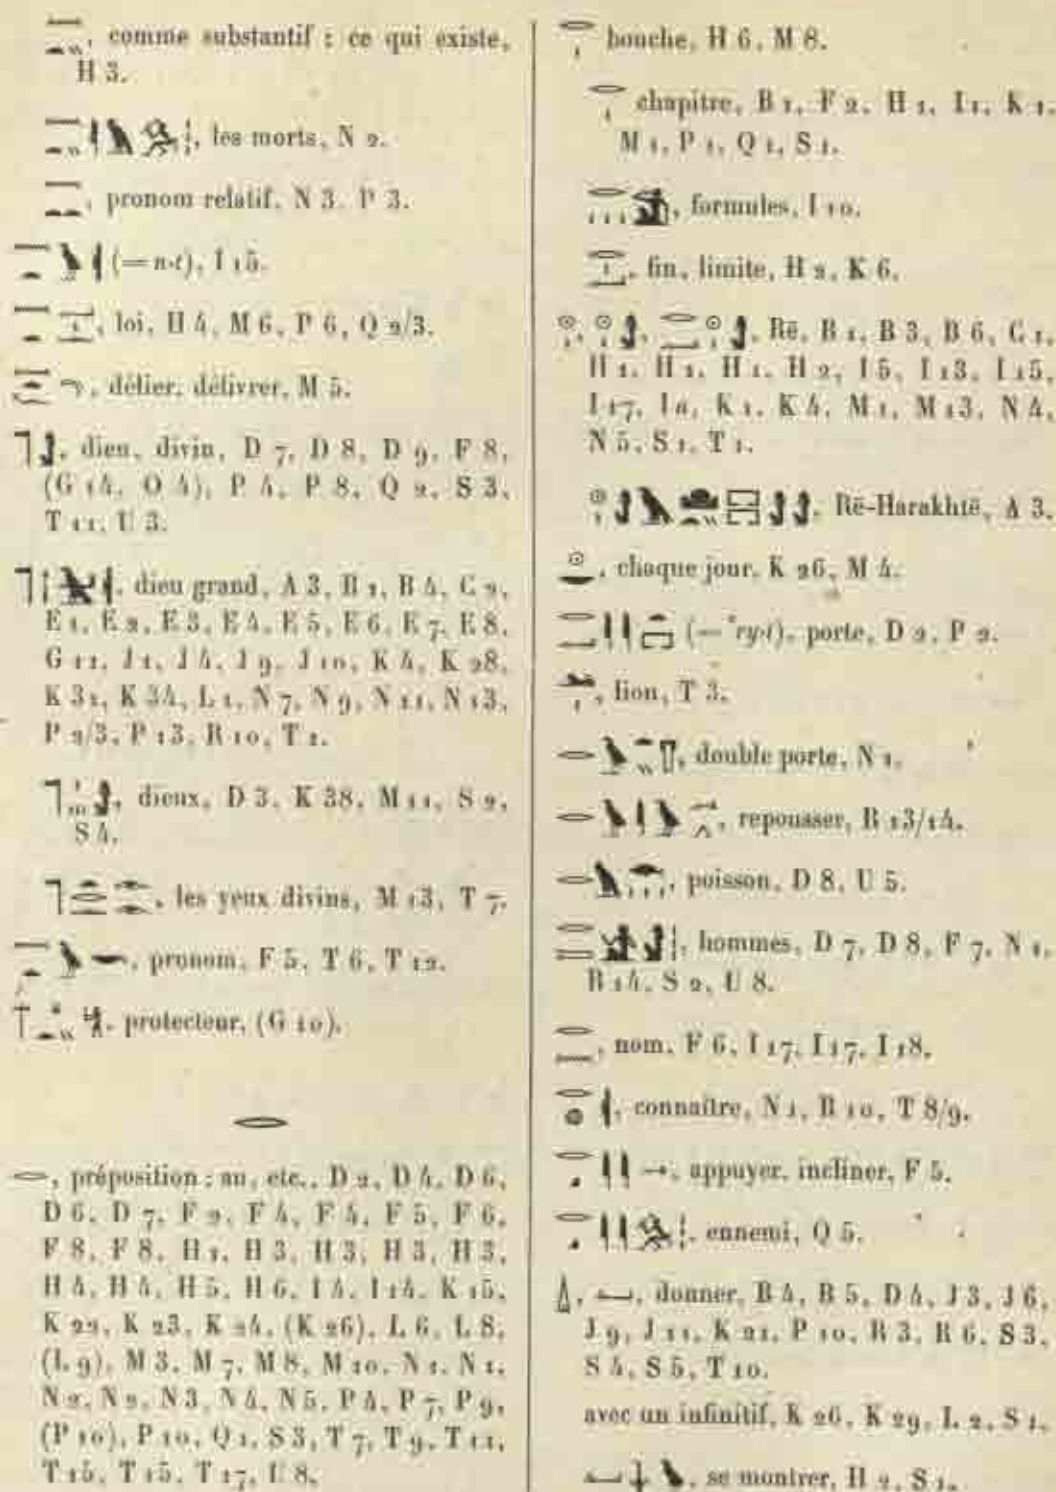 , comme substantif : ce qui existe,
H 3.
, les morts, N 2.
, pronom relatif, N 3, P 3.
(= n·t), I 15.
, loi, H 4, M 6, P 6, Q 2/3.
, délier, délivrer, M 5.
, dieu, divin, D 7, D 8, D 9, F 8,
(G 14, O 4), P 4, P 8, Q 2, S 3,
T 11, U 3.
, dieu grand, A 3, B 1, B 4, C 2,
E 1, E 2, E 3, E 4, E 5, E 6, E 7, E 8,
G 11, J 1, J 4, J 9, J 10, K 4, K 28,
K 31, K 34, L 1, N 7, N 9, N 11, N 13,
P 2/3, P 13, R 10, T 1.
, dieux, D 3, K 38, M 11, S 2,
S 4.
, les yeux divins, M 13, T 7.
, pronom, F 5, T 6, T 12.
, protecteur, (G 10).
, préposition : au, etc., D 2, D 4, D 6,
D 6, D 7, F 2, F 4, F 4, F 5, F 6,
F 8, F 8, H 1, H 3, H 3, H 3, H 3,
H 4, H 4, H 5, H 6, I 4, I 14, K 15,
K 22, K 23, K 24, (K 26), L 6, L 8,
(L 9), M 3, M 7, M 8, M 10, N 1, N 1,
N 2, N 2, N 3, N 4, N 5, P 4, P 7, P 9,
(P 10), P 10, Q 1, S 3, T 7, T 9, T 11,
T 15, T 15, T 17, U 8.
bouche, H 6, M 8.
chapitre, B 1, F 2, H 1, I 1, K 1,
M 1, P 1, Q 1, S 1.
, formules, I 10.
, fin, limite, H 2, K 6.
, Rē, B 1, B 3, B 6, C 1,
H 1, H 1, H 1, H 2, I 5, I 13, I 15,
I 17, K 1, K 4, M 1, M 13, N 4,
N 5, S 1, T 1.
, Rē-Harakhtē, A 3.
, chaque jour, K 26, M 4.
(= ʿry·t), porte, D 2, P 2.
, lion, T 3.
, double porte, N 1.
, repousser, R 13/14.
, poisson, D 8, U 5.
, hommes, D 7, D 8, F 7, N 1,
R 14, S 2, U 8.
, nom, F 6, I 17, I 17, I 18.
, connaître, N 1, R 10, T 8/9.
, appuyer, incliner, F 5.
, ennemi, Q 5.
, donner, B 4, B 5, D 4, J 3, J 6,
J 9, J 11, K 21, P 10, R 3, R 6, S 3,
S 4, S 5, T 10.
avec un infinitif, K 26, K 29, L 2, S 1.
, se montrer, H 2, S 1.